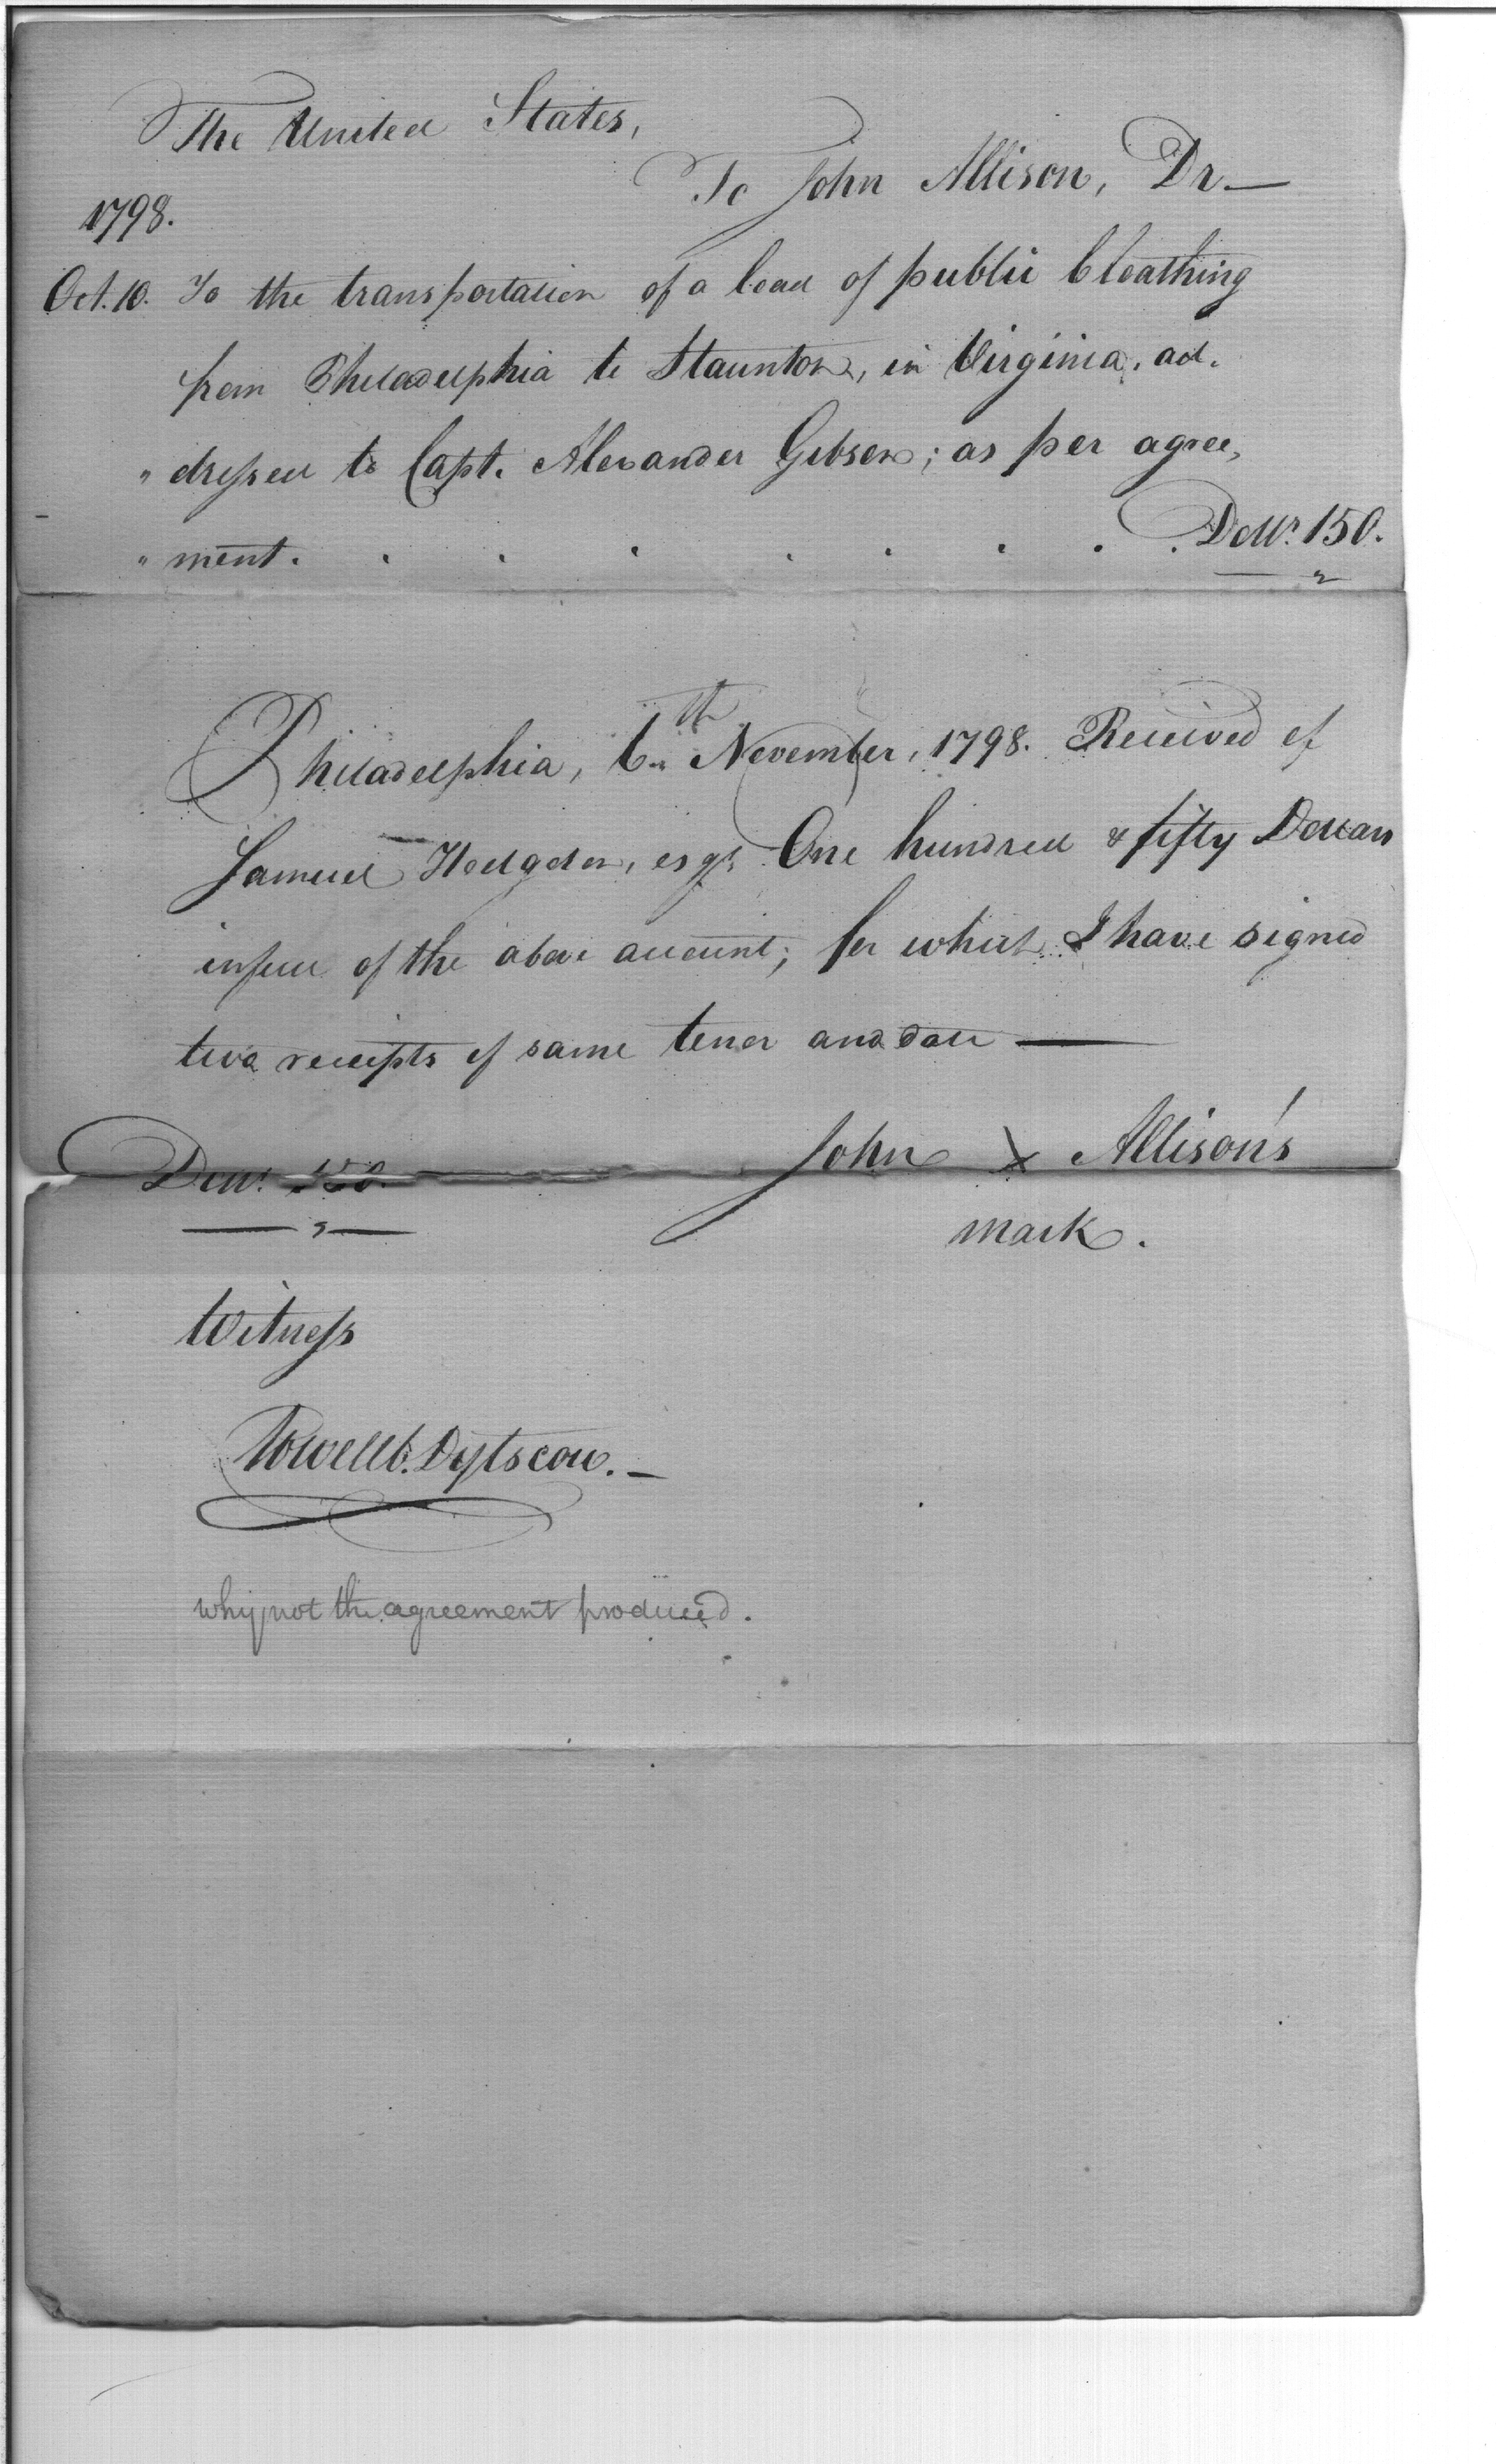 The United States,
To John Allison, Dr —
1798.
Oct. 10. To the transportation of a load of public Cloathing
from Philadelphia to Staunton, in Virginia, ad.
" dressed to Capt. Alexander Gibson; as per agree,
" ment. . . . . . . . . Dolls. 150.
Philadelphia, 6th November, 1798. Received of
Samuel Hodgdon, esqr. One hundred & fifty Dollars
in full of the above account; for which I have signed
two receipts of same tenor and date —
Dolls. 150.
John X Allison's
mark.
Witness
why not the agreement produced.